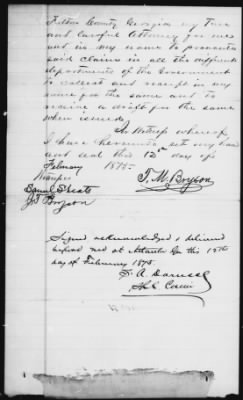 Fulton County Georgia my True
and Lawful Attorney for me
and in my name to prosecute
said claims in all the different
departments of the Government
to collect and receipt in my
name for the same and to
receive a draft for the same
when issued.
In Witness whereof
I have hereunto set my hand
and seal this 12th day of
February 1875-
T. M. Bryson
Signed acknowledged & delivered
before me at Atlanta Ga this 12th
day of February 1875.